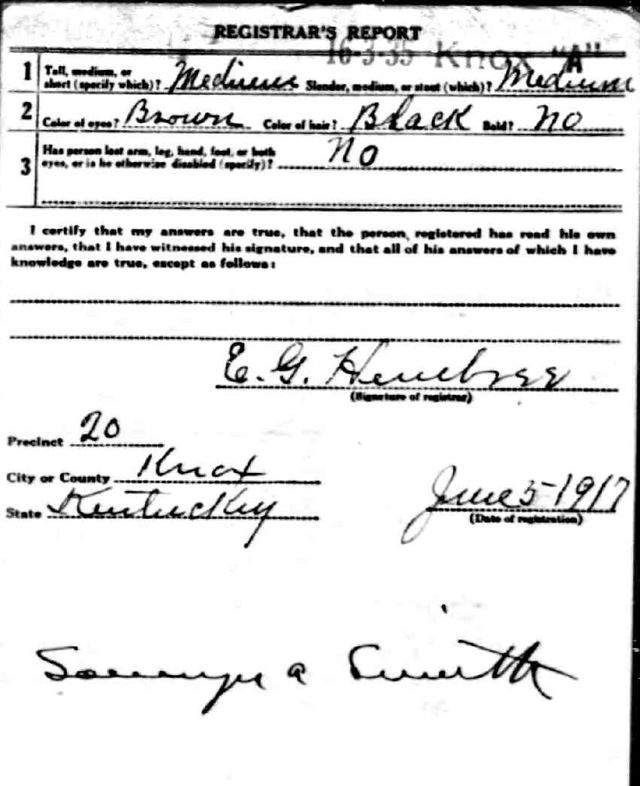 REGISTRAR'S REPORT
16-3-35 Knox "A"
1 Tall, medium, or short (specify which)? Medium Slender, medium, or stout (which)? Medium
2 Color of eyes? Brown Color of hair? Black Bald? No
3 Has person lost arm, leg, hand, foot, or both
eyes, or is he otherwise disabled (specify)? No
I certify that my answers are true, that the person registered has read his own
answers, that I have witnessed his signature, and that all of his answers of which I have
knowledge are true, except as follows:
E. G.
(Signature of registrar)
Precinct 20
City or County Knox
State Kentucky
June 5-1917
(Date of registration)
a Smith